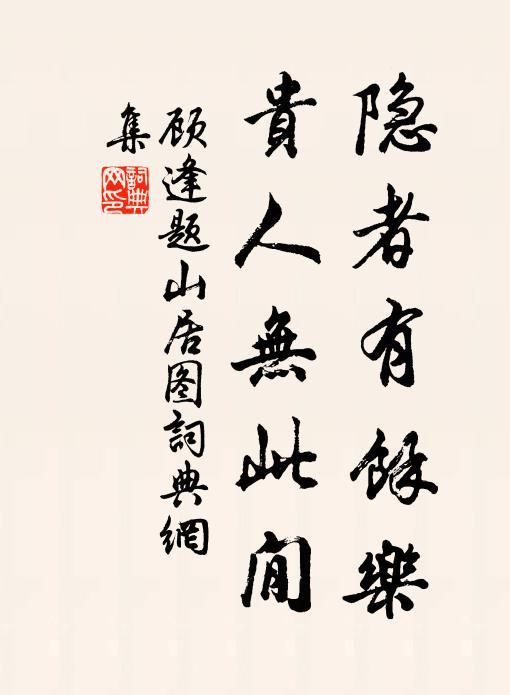 隐者有餘樂
貴人無此閒
顾逢题山居图詞典網
集
詞典
网印